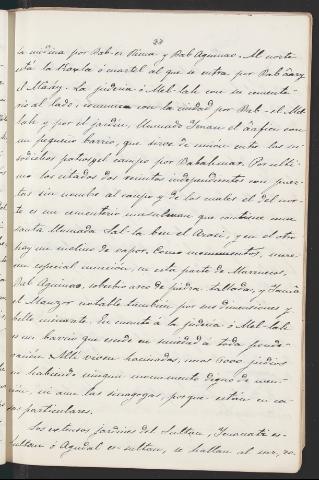 23
la medina por Bab-er Rima y Bab Aguinao. Al norte
está la Kasba ó cuartel al que se entra por Bab
el Mâsy. La judería ó Mel-lah con su cemente-
rio al lado, comunica con la ciudad por Bab-el-Mel-
lah y por el jardín, llamado Yenan el Aafia con
un pequeño barrio, que sirve de unión entre los
y el campo por Bab Ahmar. Por últi-
mo los citados dos recintos independientes con puer-
tas sin nombre al campo y de los cuales el del nor-
te es un cementerio musulman que contiene una
santa llamada Lal-la ben el y en el otro
hay un molino de vapor. Como monumentos, mere-
cen especial mención, en esta parte de Marruecos,
Bab Aguinao, soberbio arco de piedra tallada, y Yamâ
el Manzor notable tambien por sus dimensiones y
bello minarete. En cuanto á la judería ó Mel-lah
es un barrio que excede en suciedad á toda ponde-
ración. Allí viven hacinados, unos 6000 judíos
no habiendo ningún monumento digno de men-
ción, ni aun las sinagogas, porque están en ca-
sas particulares.
Los extensos jardines del Sultan, Yenanat es-
sultan ó Agudal es-sultan, se hallan al sur, ro-